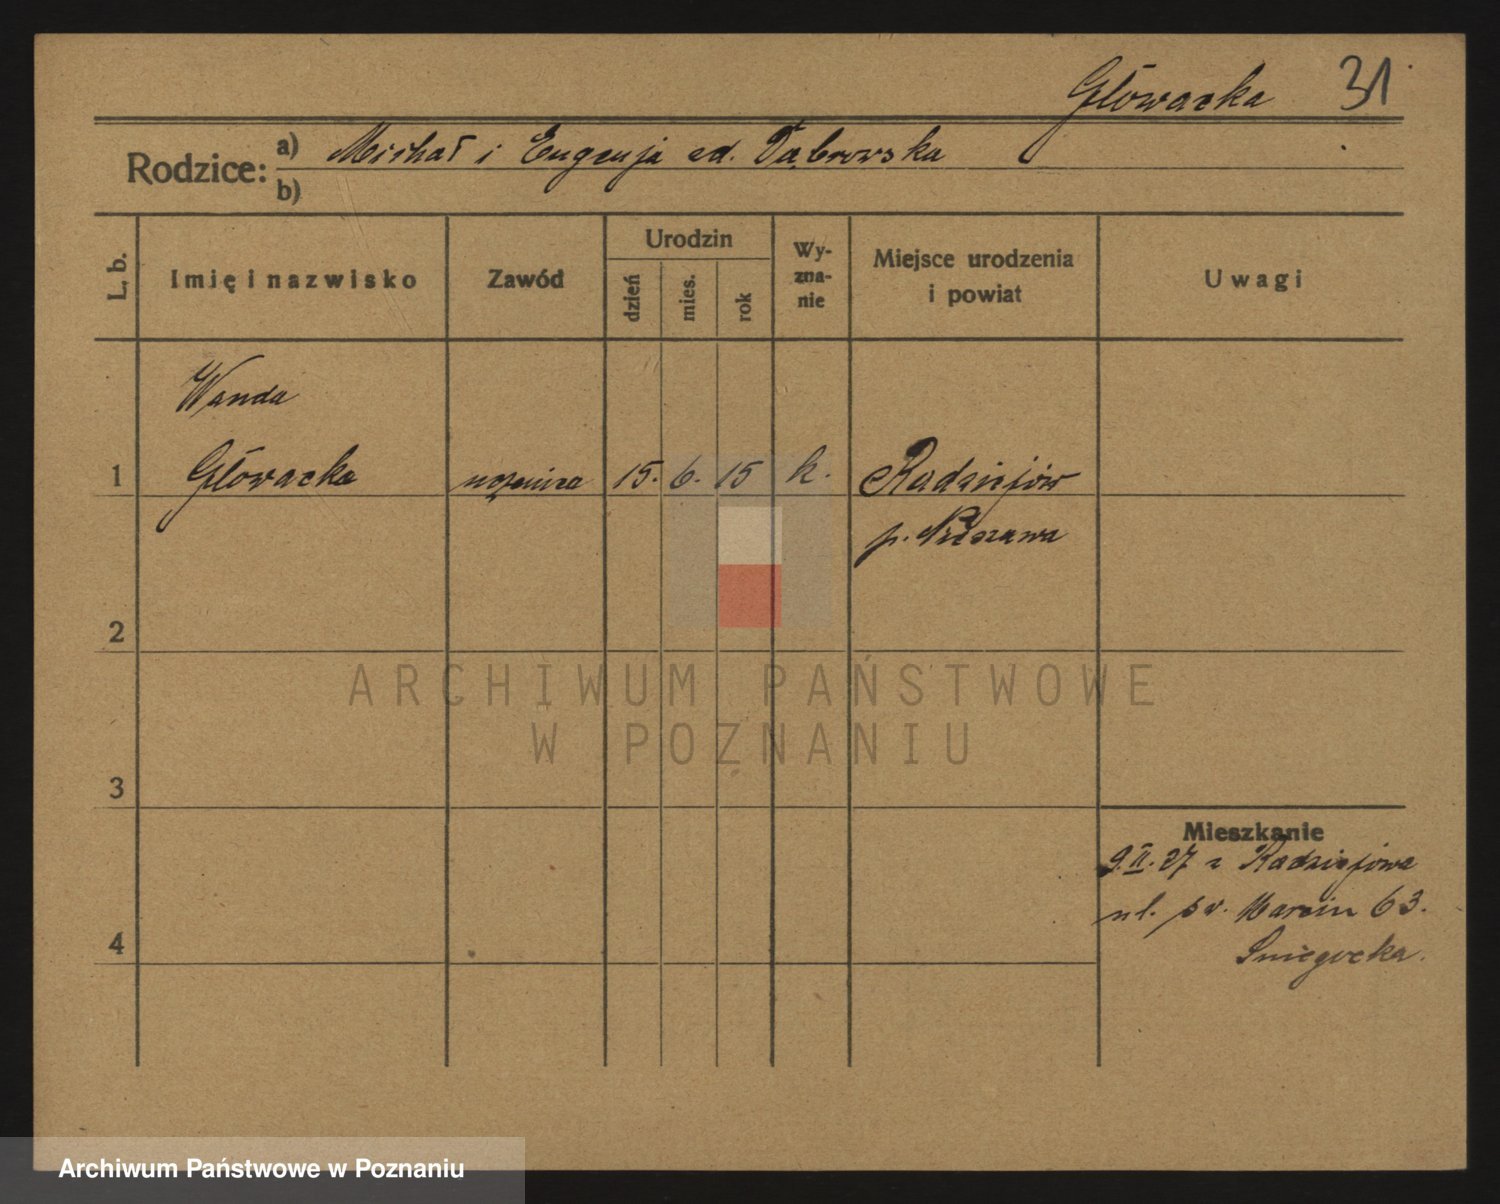 Głowacka 31
Rodzice: a) Michał i Eugenja zd. Dąbrowska
b)
L. b.
Imię i nazwisko
Zawód
Urodzin
dzień
mies.
rok
Wy-
zna-
nie
Miejsce urodzenia
i powiat
Uwagi
Wanda
1 Głowacka uczenica 15. 6. 15 k. Radziejów
p. Nieszawa
2
ARCHIWUM PAŃSTWOWE
W POZNANIU
3
Mieszkanie
9.II.27 z Radziejowa
ul. św. Marcin 63.
4
Śniegocka.
Archiwum Państwowe w Poznaniu